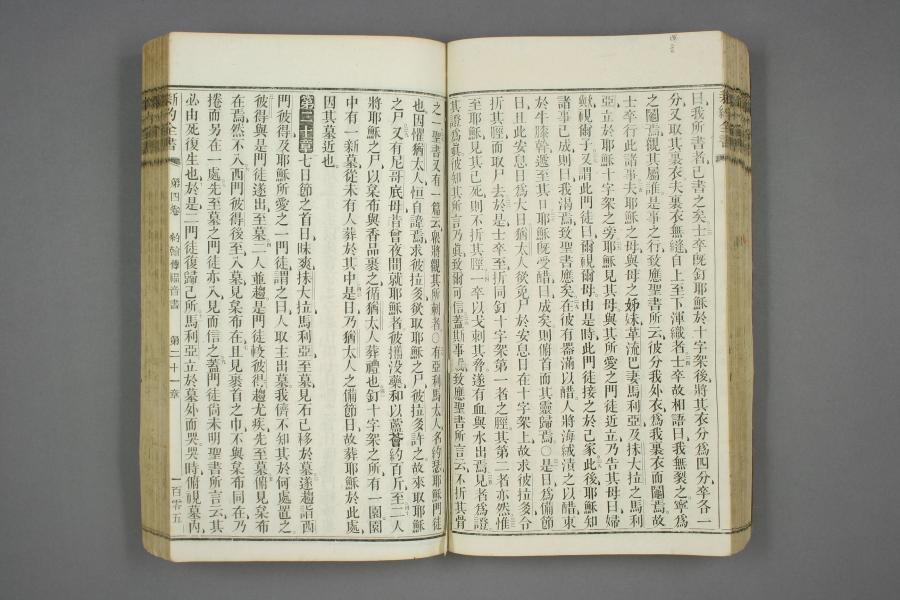 曰我所書者已書之矣士卒既釘耶穌於十字架後將其衣分爲四分卒各一
分又取其裏衣夫裏衣無縫自上至下渾織者士卒故相語曰我無裂之寧爲
之鬮焉觀其屬誰是事之行致應聖書所云彼分我外衣爲我裏衣而鬮焉故
士卒行此諸事夫耶穌之母與母之姊妹革流巴妻馬利亞及抹大拉之馬利
亞立於耶穌十字架之旁耶穌見其母與其所愛之門徒近立乃告其母曰婦
歟視爾子又謂此門徒曰爾視爾母由是時此門徒接之於己家此後耶穌知
諸事已成則曰我渴焉致聖書應矣在彼有器滿以醋人將海絨漬之以醋束
於牛膝幹遞至其口耶穌既受醋曰成矣則俯首而其靈歸焉○是日爲備節
日且此安息日爲大日猶太人欲免尸於安息日在十字架上故求彼拉多令
折其脛而取尸去於是士卒至折同釘十字架第一者之脛其第二者亦然惟
至耶穌見其已死則不折其脛一卒以戈刺其脅遂有血與水出焉見者爲證
其證爲眞彼知其所言乃眞致爾可信蓋斯事成致應聖書所言云不折其骨
之一聖書又有一篇云衆將觀其所刺者○有亞利馬太人名約瑟耶穌門徒
也因懼猶太人恒自諱焉求彼拉多欲取耶穌之尸彼拉多許之故來取耶穌
之尸又有尼哥底母昔曾夜間就耶穌者彼攜沒藥和以蘆薈約百斤至二人
將耶穌之尸以枲布與香品裹之循猶太人葬禮也釘十字架之所有一園園
中有一新墓從未有人葬於其中是日乃猶太人之備節日故葬耶穌於此處
因其墓近也
第二十章七日節之首日昧爽抹大拉馬利亞至墓見石已移於墓遂趨詣西
門彼得及耶穌所愛之一門徒謂之曰人取主出墓我儕不知其於何處置之
彼得與是門徒遂出至墓二人並趨是門徒較彼得趨尤疾先至墓俯見枲布
在焉然不入西門彼得後至入墓見枲布在且見裹首之巾不與枲布同在乃
捲而另在一處先至墓之門徒亦入見而信之蓋門徒尙未明聖書所言云其
必由死復生也於是二門徒復歸己所馬利亞立於墓外而哭哭時俯視墓內
新約全書 第四卷 約翰傳福音書 第二十一章 一百零五